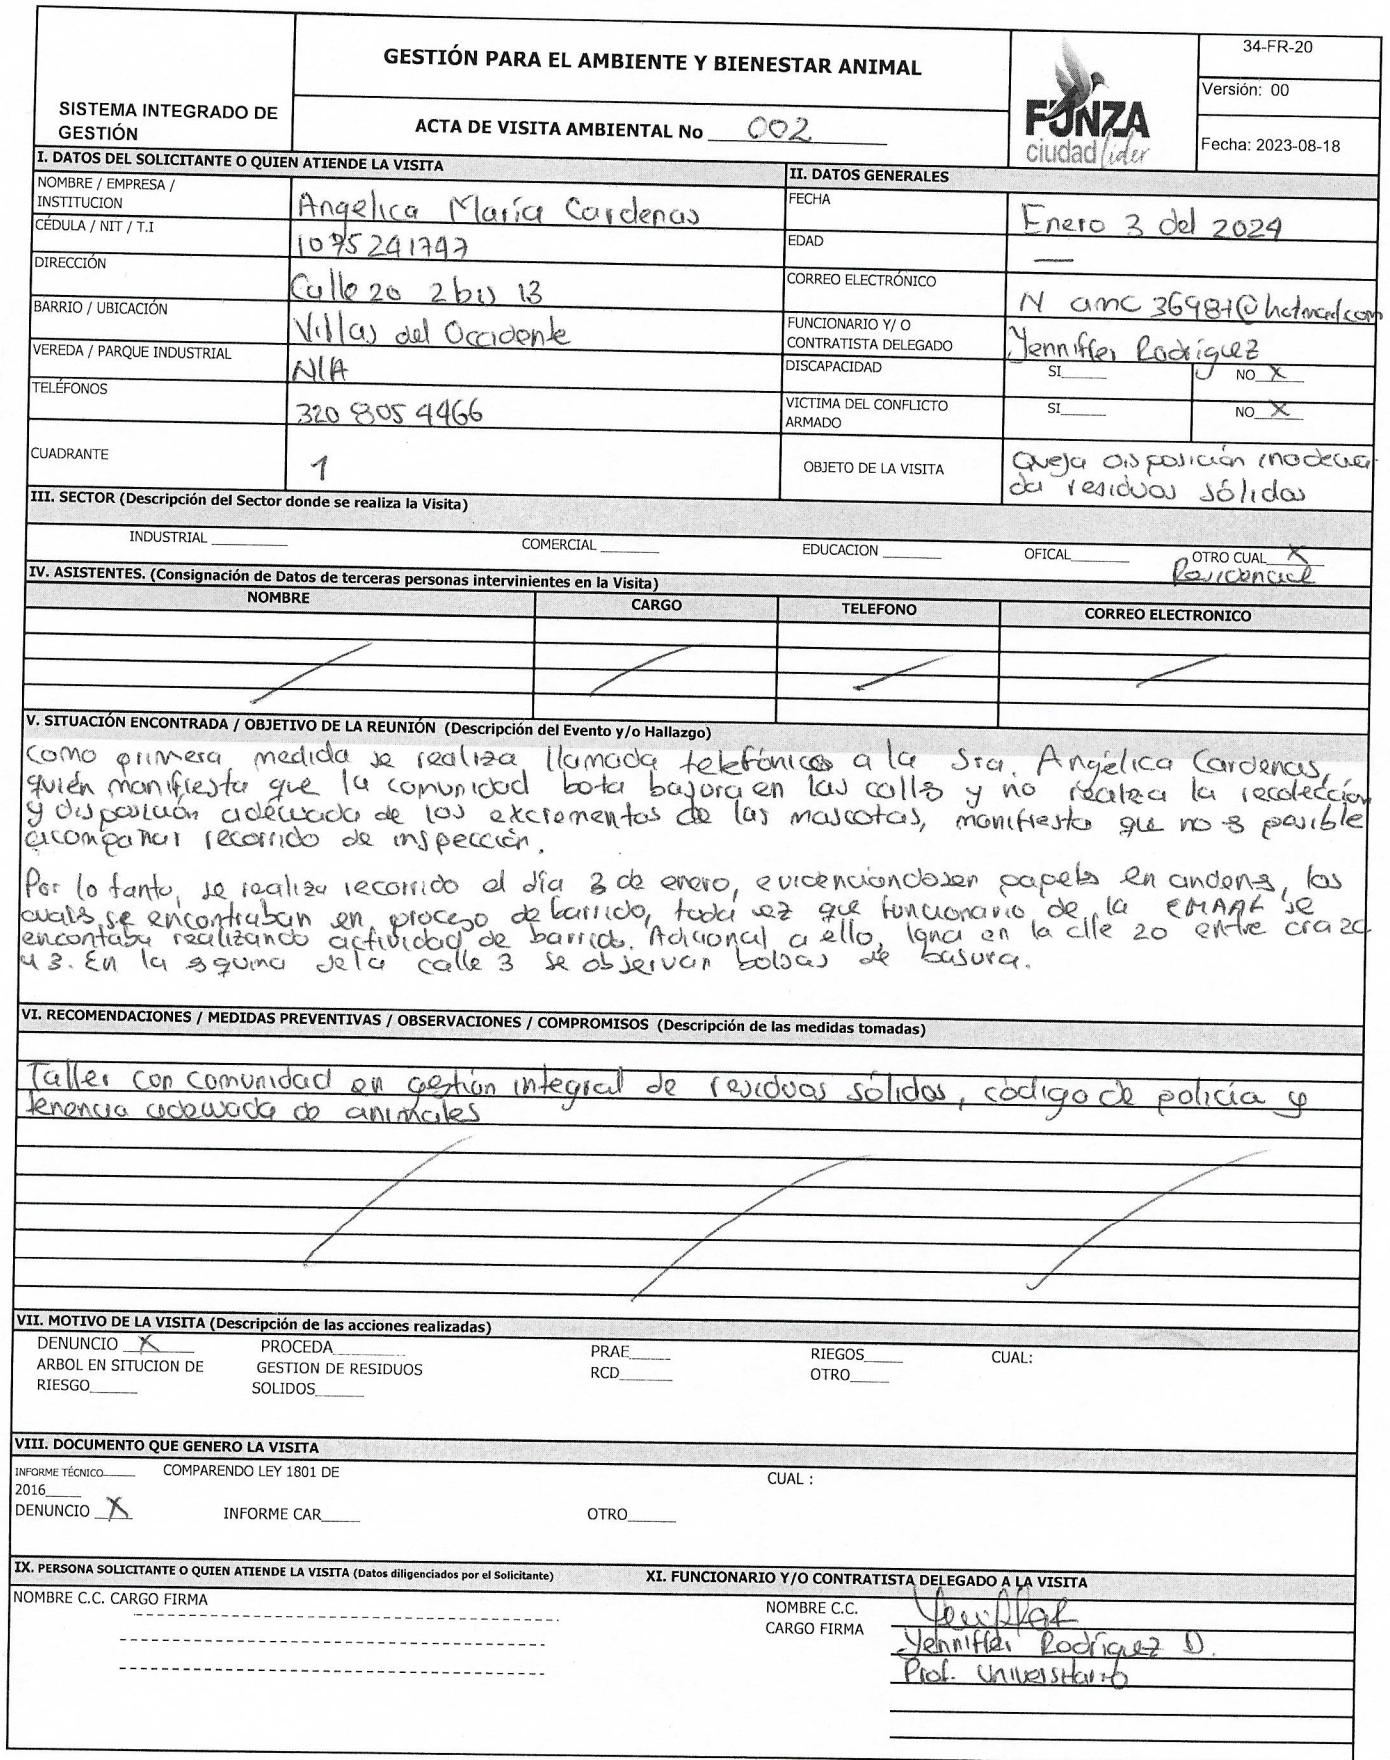 SISTEMA INTEGRADO DE
GESTIÓN
GESTIÓN PARA EL AMBIENTE Y BIENESTAR ANIMAL
ACTA DE VISITA AMBIENTAL No 002
FUNZA
ciudad líder
34-FR-20
Versión: 00
Fecha: 2023-08-18
I. DATOS DEL SOLICITANTE O QUIEN ATIENDE LA VISITA
NOMBRE / EMPRESA /
INSTITUCION
Angelica María Cardenas
CÉDULA / NIT / T.I
1075241747
DIRECCIÓN
Calle 20 2 bis 13
BARRIO / UBICACIÓN
Villas del Occidente
VEREDA / PARQUE INDUSTRIAL
N/A
TELÉFONOS
320 805 4466
CUADRANTE
1
II. DATOS GENERALES
FECHA
Enero 3 del 2024
EDAD
—
CORREO ELECTRÓNICO
FUNCIONARIO Y/ O
CONTRATISTA DELEGADO
Yenniffer Rodríguez
DISCAPACIDAD
SI____ NO X
VICTIMA DEL CONFLICTO
ARMADO
SI____ NO X
OBJETO DE LA VISITA
Queja disposición inadecua
da residuos sólidos
III. SECTOR (Descripción del Sector donde se realiza la Visita)
INDUSTRIAL ____ COMERCIAL ____ EDUCACION ____ OFICAL____ OTRO CUAL X
Residencial
IV. ASISTENTES. (Consignación de Datos de terceras personas intervinientes en la Visita)
NOMBRE CARGO TELEFONO CORREO ELECTRONICO
V. SITUACIÓN ENCONTRADA / OBJETIVO DE LA REUNIÓN (Descripción del Evento y/o Hallazgo)
Como primera medida se realiza llamada telefónica a la Sra. Angélica Cardenas,
quién manifiesta que la comunidad bota basura en las calles y no realiza la recolección
y disposición adecuada de los excrementos de las mascotas, manifiesta que no es posible
acompañar recorrido de inspección.
Por lo tanto, se realiza recorrido el día 3 de enero, evidenciandosen papeles en andenes, los
cuales se encontraban en proceso de barrido, toda vez que funcionario de la EMAAF se
encontaba realizando actividad de barrido. Adicional a ello, en la clle 20 entre cra 2a
y 3. En la esquina de la calle 3 se observan bolsas de basura.
VI. RECOMENDACIONES / MEDIDAS PREVENTIVAS / OBSERVACIONES / COMPROMISOS (Descripción de las medidas tomadas)
Taller con comunidad en gestión integral de residuos sólidos, código de policía y
tenencia adecuada de animales
VII. MOTIVO DE LA VISITA (Descripción de las acciones realizadas)
DENUNCIO X PROCEDA____ PRAE____ RIEGOS____ CUAL:
ARBOL EN SITUCION DE GESTION DE RESIDUOS RCD____ OTRO____
RIESGO____ SOLIDOS____
VIII. DOCUMENTO QUE GENERO LA VISITA
INFORME TÉCNICO____ COMPARENDO LEY 1801 DE CUAL :
2016____
DENUNCIO X INFORME CAR____ OTRO____
IX. PERSONA SOLICITANTE O QUIEN ATIENDE LA VISITA (Datos diligenciados por el Solicitante)
NOMBRE C.C. CARGO FIRMA
XI. FUNCIONARIO Y/O CONTRATISTA DELEGADO A LA VISITA
NOMBRE C.C.
CARGO FIRMA
Yenniffer Rodríguez D.
Prof. Universitario